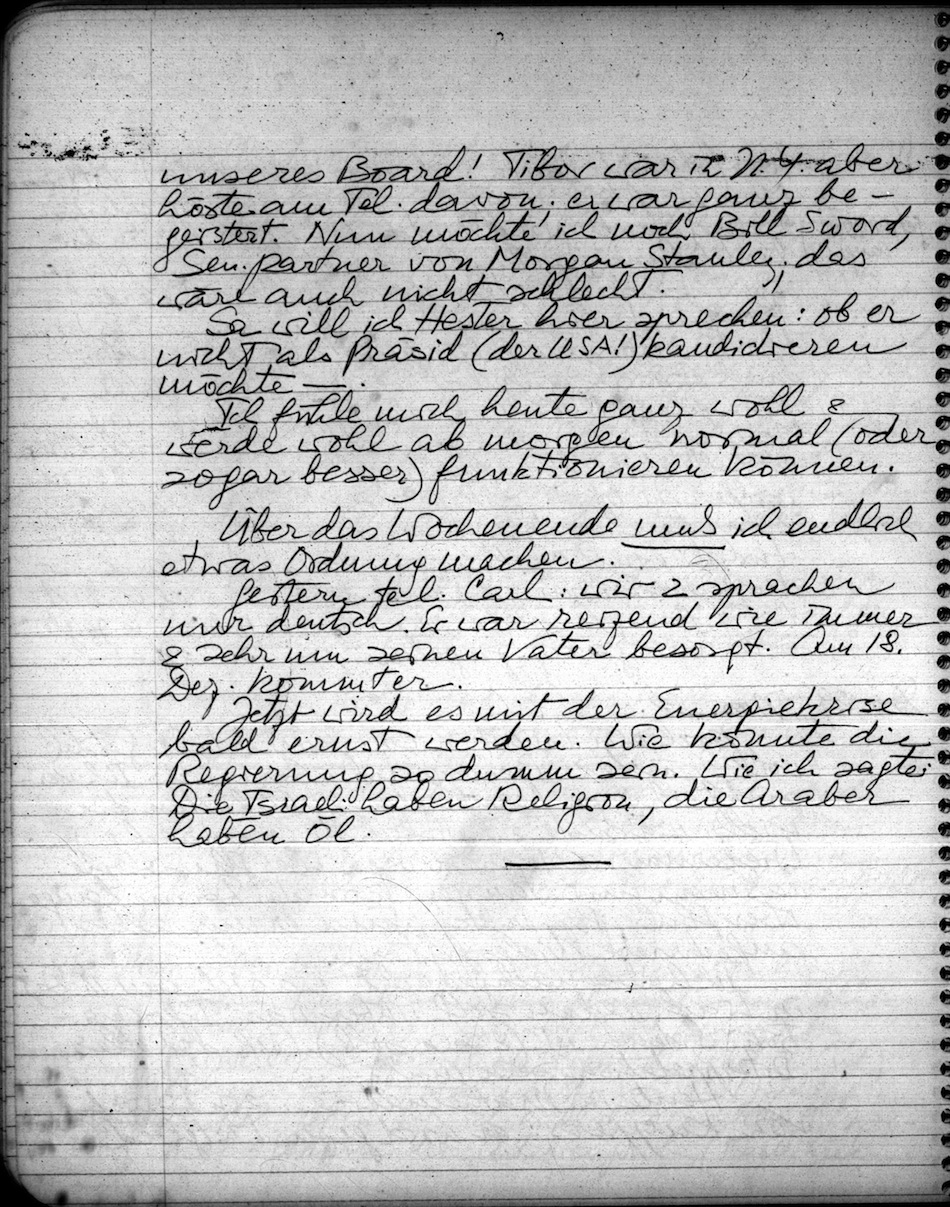 unseres Board! Tibor war in N.Y. aber
hörte am Tel. davon; er war ganz be-
geistert. Nun möchte ich noch Bill Sword,
Sen. partner von Morgan Stanley; das
wäre auch nicht schlecht.
Sa will ich Hester hier sprechen: ob er
nicht als Präsid (der USA!) kandidieren
möchte —.
Ich fühle mich heute ganz wohl &
werde wohl ab morgen normal (oder
sogar besser) funktionieren können.
Über das Wochenende muß ich endlich
etwas Ordnung machen.
Gestern tel. Carl: wir 2 sprachen
nur deutsch. Er war reizend wie immer
& sehr um seinen Vater besorgt. Am 18.
Dez. kommt er.
Jetzt wird es mit der Energiekrise
bald ernst werden. Wie konnte die
Regierung so dumm sein. Wie ich sagte:
Die Israeli haben Religion, die Araber
haben Öl.